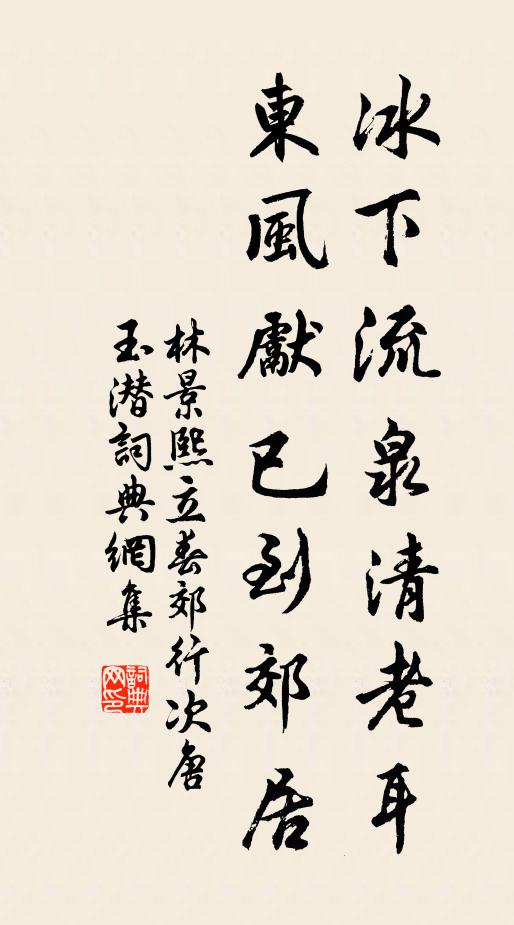 冰下流泉清老耳
東風獻已到郊居
林景熙立春郊行次唐
玉潜詞典網集
詞典網印